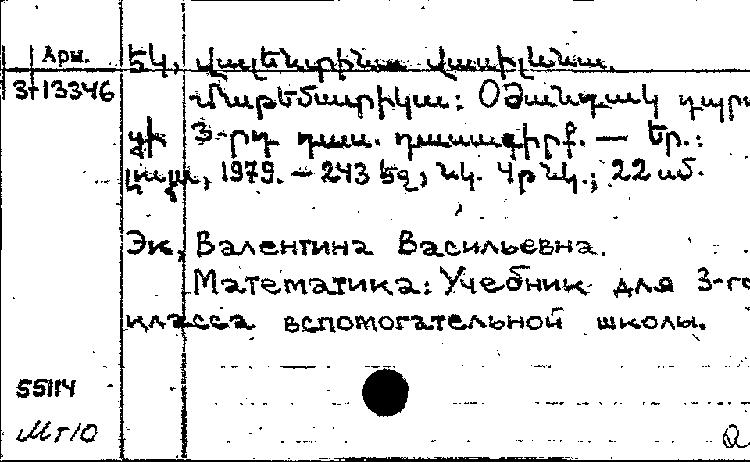 Արм. Էկ, Վալենտինա Վասիլևնա.
Յ-13346 Մաթեմատիկա: Օժանդակ դպրո
ցի 3-րդ դաս. դասագիրք. — Եր.:
Լույս, 1979. – 243 էջ, նկ. Կրնկ.; 22 սմ.
Эк, Валентина Васильевна.
Математика: Учебник для 3-го
класса вспомогательной школы.
55114
МТ10